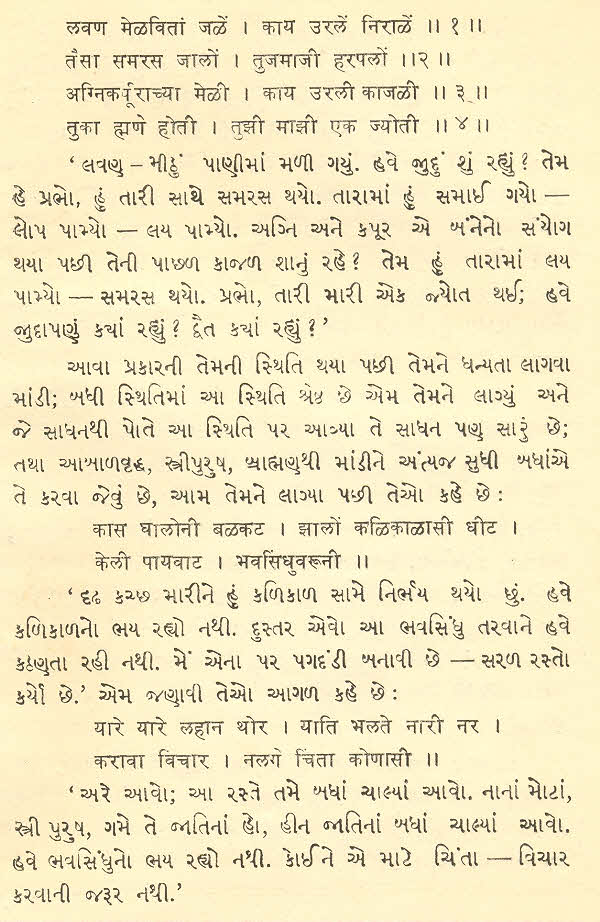 लवण मेळवितां जळें । काय उरलें निराळें ।। १ ।।
तैसा समरस जालों । तुजमाजी हरपलों ।।२ ।।
अग्निकर्पूराच्या मेळी । काय उरली काजळी ।। ३ ।।
तुका ह्मणे होती । तुझी माझी एक ज्योती ।। ४ ।।
‘લવણ – મીઠું પાણીમાં મળી ગયું. હવે જુદું શું રહ્યું? તેમ
હે પ્રભો, હું તારી સાથે સમરસ થયો. તારામાં હું સમાઈ ગયો —
લોપ પામ્યો — લય પામ્યો. અગ્નિ અને કપૂર એ બંનેનો સંયોગ
થયા પછી તેની પાછળ કાજળ શાનું રહે? તેમ હું તારામાં લય
પામ્યો — સમરસ થયો. પ્રભો, તારી મારી એક જ્યોત થઈ; હવે
જુદાપણું ક્યાં રહ્યું? દ્વૈત ક્યાં રહ્યું?’
આવા પ્રકારની તેમની સ્થિતિ થયા પછી તેમને ધન્યતા લાગવા
માંડી; બધી સ્થિતિમાં આ સ્થિતિ શ્રેષ્ઠ છે એમ તેમને લાગ્યું અને
જે સાધનથી પોતે આ સ્થિતિ પર આવ્યા તે સાધન પણ સારું છે;
તથા આબાળવૃદ્ધ, સ્ત્રીપુરુષ, બ્રાહ્મણથી માંડીને અંત્યજ સુધી બધાંએ
તે કરવા જેવું છે, આમ તેમને લાગ્યા પછી તેઓ કહે છે :
कास घालोनी बळकट । झालों कळिकाळासी धीट ।
केली पायवाट । भवसिंधुवरूनी ।।
‘દૃઢ કચ્છ મારીને હું કળિકાળ સામે નિર્ભય થયો છું. હવે
કળિકાળનો ભય રહ્યો નથી. દુસ્તર એવો આ ભવસિંધુ તરવાને હવે
કઠણતા રહી નથી. મેં એના પર પગદંડી બનાવી છે — સરળ રસ્તો
કર્યો છે.’ એમ જણાવી તેઓ આગળ કહે છે :
यारे यारे लहान थोर । याति भलते नारी नर ।
करावा विचार । नलगे चिंता कोणासी ।।
‘અરે આવો; આ રસ્તે તમે બધાં ચાલ્યાં આવો. નાનાં મોટાં,
સ્ત્રી પુરુષ, ગમે તે જાતિનાં હો, હીન જાતિનાં બધાં ચાલ્યાં આવો.
હવે ભવસિંધુનો ભય રહ્યો નથી. કોઈને એ માટે ચિંતા — વિચાર
કરવાની જરૂર નથી.’